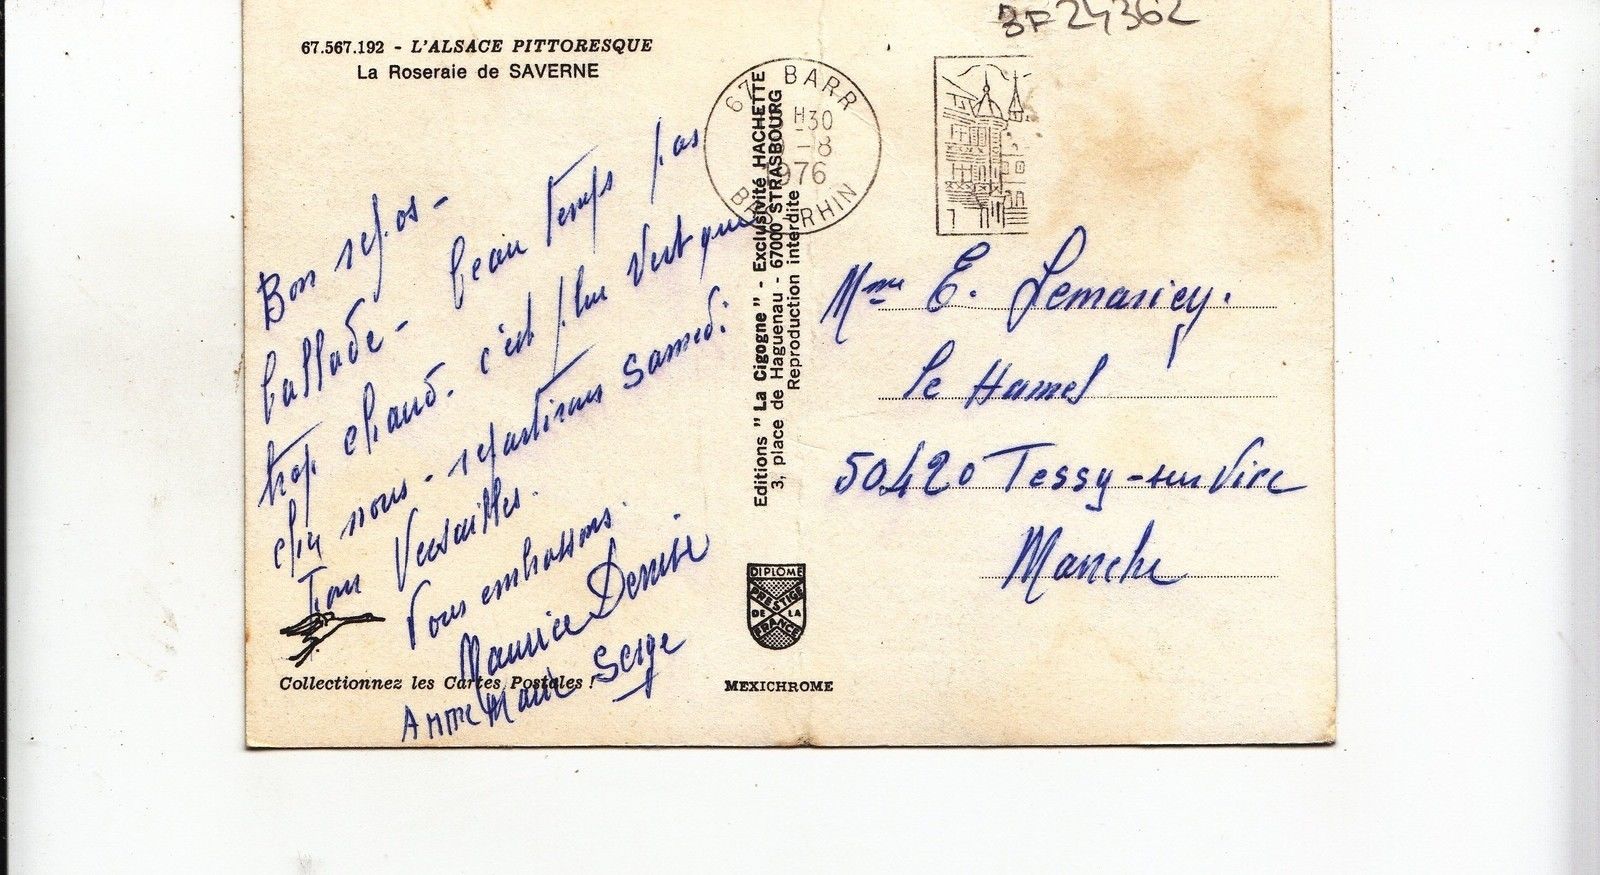 3F24362
67.567.192 - L'ALSACE PITTORESQUE
La Roseraie de SAVERNE
67 BARR
H30
-8
1976
BAS RHIN
Bon repos -
ballade - beau temps pas
trop chaud. c'est plus vert que
chez nous - repartirons samedi
pour Versailles.
Vous embrassons.
Maurice Denise
Anne Marie Serge
Collectionnez les Cartes Postales !
Editions " La Cigogne " - Exclusivité HACHETTE
3, place de Haguenau - 67000 STRASBOURG
Reproduction interdite
DIPLOME
PRESTIGE
DE LA
FRANCE
MEXICHROME
Mme E. Lemariey.
le Hamel
50420 Tessy-sur Vire
Manche